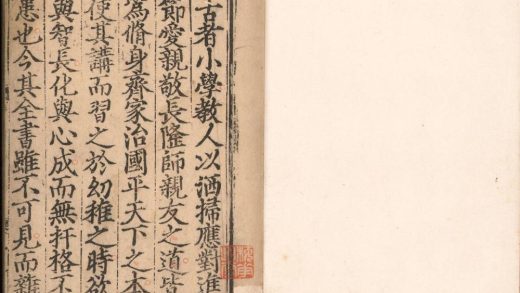 古者小學教人以洒掃應對進
節愛親敬長隆師親友之道皆
為脩身齊家治國平天下之本
使其講而習之於幼稚之時欲
與智長化與心成而無扞格不
患也今其全書雖不可見而雜